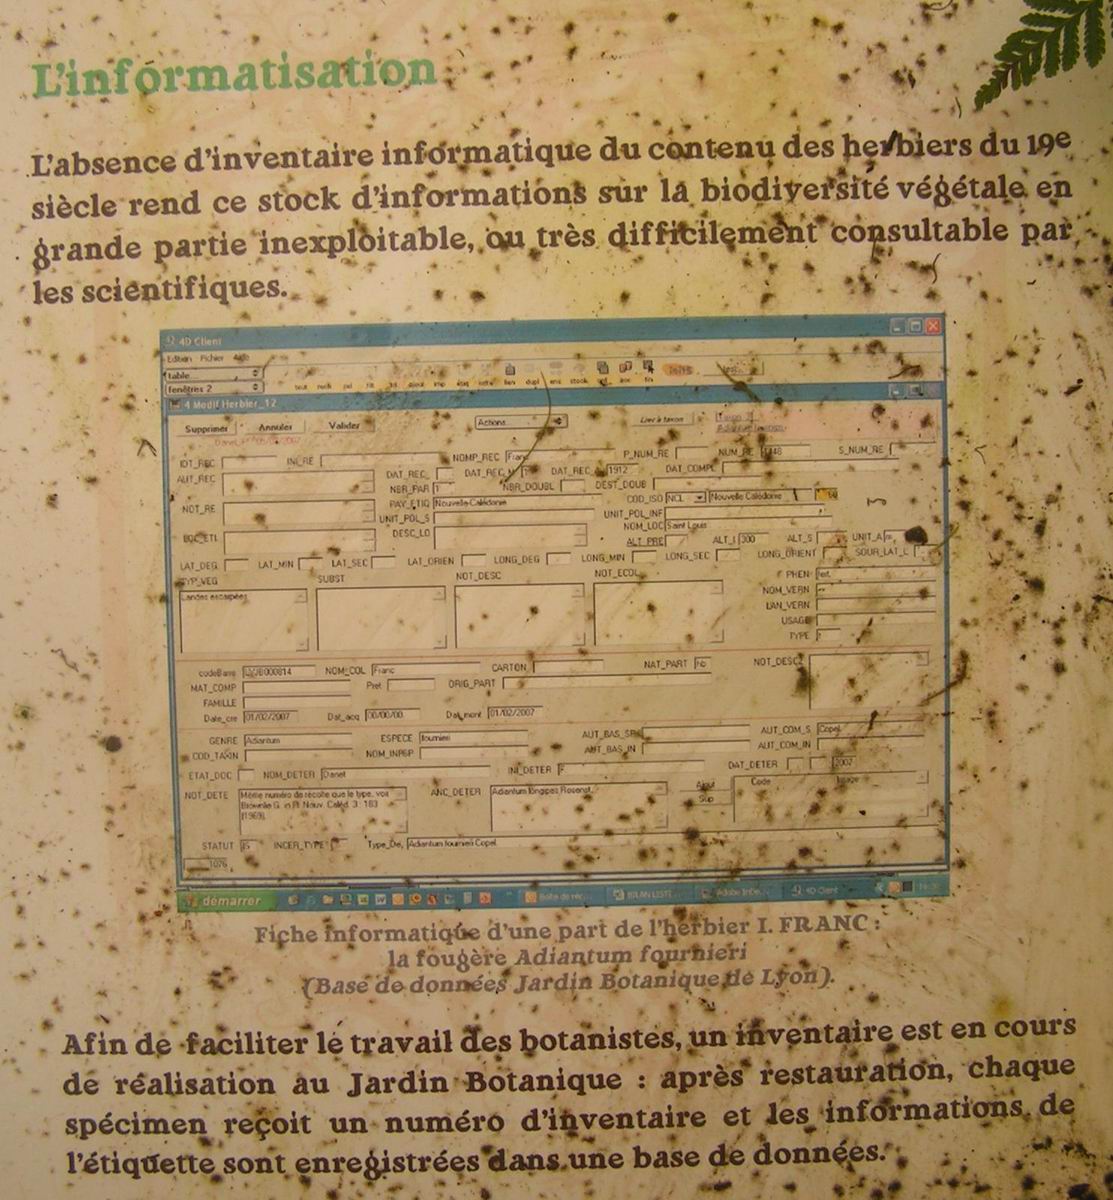 L'informatisation
L'absence d'inventaire informatique du contenu des herbiers du 19e
siècle rend ce stock d'informations sur la biodiversité végétale en
grande partie inexploitable, ou très difficilement consultable par
les scientifiques.
4D Client
Edition Fichier Aide
table
fenêtres 2
4 Modif Herbier_12
Supprimer Annuler Valider Actions
IDT_REC INI_RE NOMP_REC Franc P_NUM_RE NUM_RE S_NUM_RE
AUT_REC DAT_REC DAT_REC_M DAT_REC 1912 DAT_COMPL
NBR_PAR 1 NBR_DOUBL DEST_DOUB
NOT_RE PAY_ETIQ Nouvelle-Calédonie COD_ISO NCL Nouvelle Calédonie
UNIT_POL_S UNIT_POL_INF
DESC_LO NOM_LOC Saint Louis
ALT_PRE ALT_I 300 ALT_S UNIT_A m
LAT_DEG LAT_MIN LAT_SEC LAT_ORIEN LONG_DEG LONG_MIN LONG_SEC LONG_ORIENT SOUR_LAT_L
TYP_VEG SUBST NOT_DESC NOT_ECOL PHEN
Landes escarpées NOM_VERN
LAN_VERN
USAGE
TYPE
codeBarre NOM_COL Franc CARTON NAT_PART NOT_DESC2
MAT_COMP Pret ORIG_PART
FAMILLE
Date_cre 01/02/2007 Dat_acq 00/00/00 Dat_mont 01/02/2007
GENRE Adiantum ESPECE fournieri AUT_BAS_SP AUT_COM_S Copel.
COD_TAXIN NOM_INFSP AUT_BAS_IN AUT_COM_IN
ETAT_DOC NOM_DETER Danet INI_DETER F DAT_DETER 2007
NOT_DETE Même numéro de récolte que le type, voir ANC_DETER Adiantum longipes Rosenst. Ajout Code Image
Brownlie G. in Fl. Nouv. Caléd. 3 : 183 Sup
(1969).
STATUT INCER_TYPE Type_De Adiantum fournieri Copel.
1076
démarrer BILAN LISTE 4D Client
Fiche informatique d'une part de l'herbier I. FRANC :
la fougère Adiantum fournieri
(Base de données Jardin Botanique de Lyon).
Afin de faciliter le travail des botanistes, un inventaire est en cours
de réalisation au Jardin Botanique : après restauration, chaque
spécimen reçoit un numéro d'inventaire et les informations de
l'étiquette sont enregistrées dans une base de données.